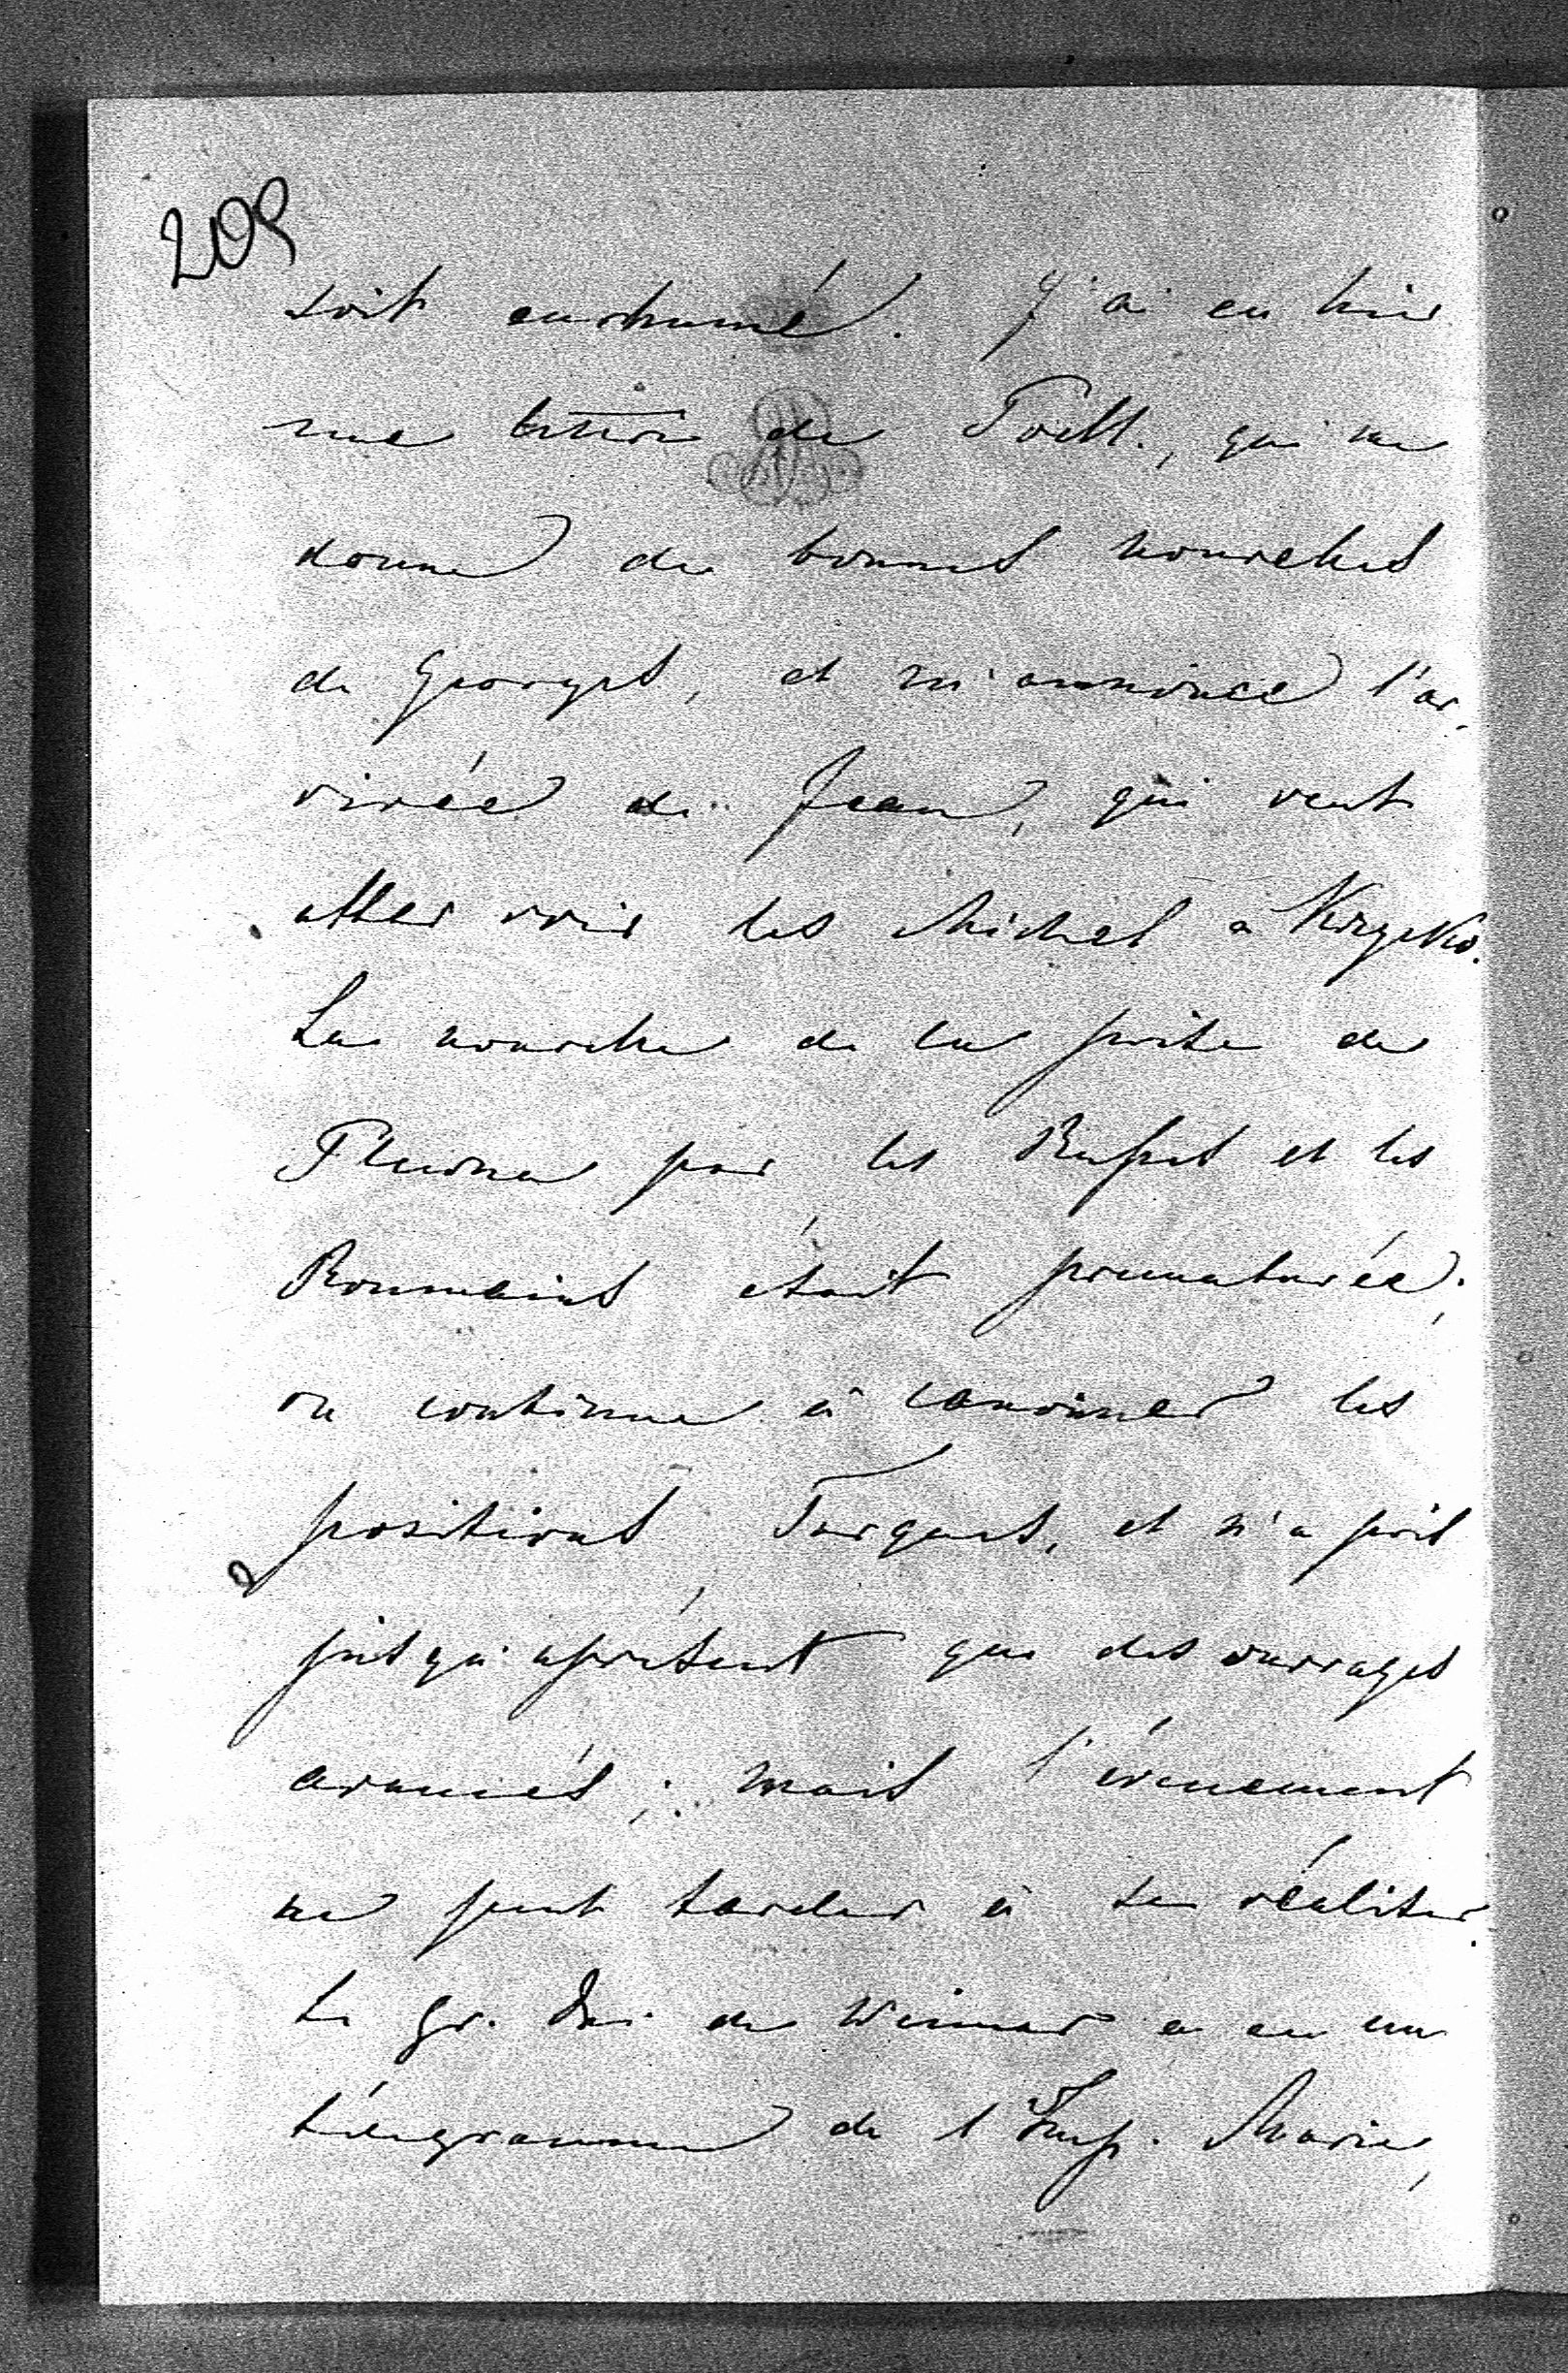 209
soit enrhumé. J'ai eu hier
une lettre de Toell., qui me
donne de bonnes nouvelles
de Georges, et m'annonce l'ar-
rivée de Jean, qui veut
aller voir les Michel à
La nouvelle de la prise de
Plewna par les Russes et les
Roumains était prématurée;
on continue à canonner les
positions Turques, et n'a pris
jusqu'aprésent que des ouvrages
avancés; mais l'évenement
ne peut tarder à se réaliser.
Le Gr. Duc de Weimar a eu un
télégramme de l'Imp. Marie,